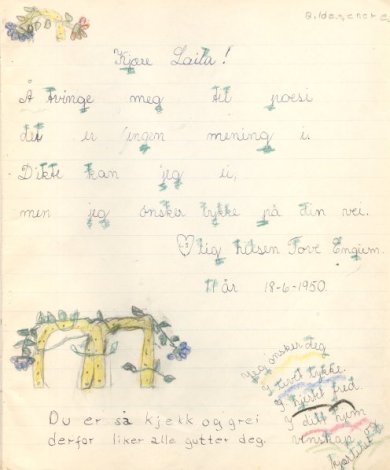 Kjære Laila!
Å tvinge meg til poesi
det er ingen mening i.
Dikte kan jeg ei,
men jeg ønsker lykke på din vei.
♡lig hilsen Tove Engum.
11 år 18-6-1950.
Jeg ønsker deg
I livet lykke.
I hjertet fred.
I ditt hjem
vennskap og
hjertet
Du er så kjekk og grei
derfor liker alle gutter deg.